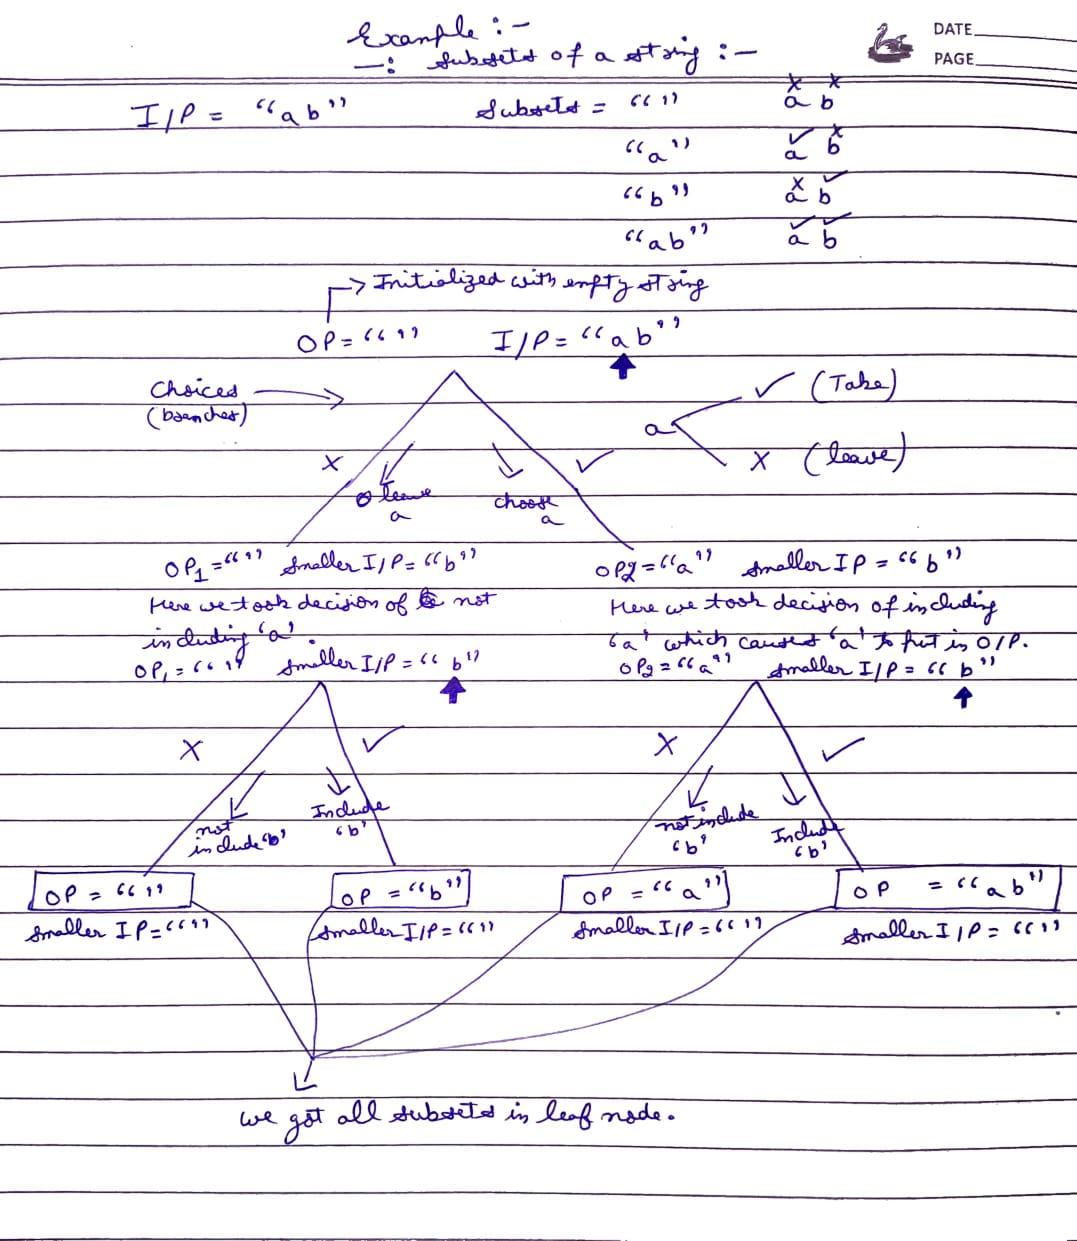 Example :-
—: Subsets of a string :-
DATE
PAGE
I/P = “ab” Subsets = “ ” a b
“a” a b
“b” a b
“ab” a b
→ Initialized with empty string
OP = “ ” I/P = “ab”
Choices (Take)
(branches) a
x (leave)
x leave choose
a a
OP1 = “ ” smaller I/P = “b” OP2 = “a” smaller IP = “b”
Here we took decision of not Here we took decision of including
including ‘a’. ‘a’ which caused ‘a’ to put in O/P.
OP1 = “ ” smaller I/P = “b” OP2 = “a” smaller I/P = “b”
x ✓ x ✓
not include ‘b’ Include ‘b’ not include ‘b’ Include ‘b’
OP = “ ” OP = “b” OP = “a” OP = “ab”
smaller IP = “ ” smaller I/P = “ ” smaller I/P = “ ” smaller I/P = “ ”
we got all subsets in leaf node.